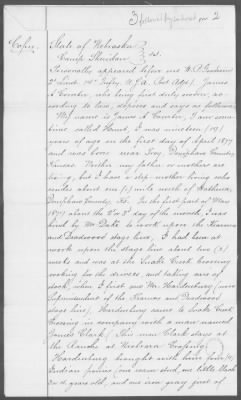 3 followed by 2
Copy.
State of Nebraska
Camp Sheridan } S.S.
Personally appeared before me
2d Lieut. 14" Infty. U.S.A. (Post Adjt.) James
A Carter, who being first duly sworn, ac-
cording to law, deposes and says as follows
My name is James A Carter, I am some
time called Hank, I was nineteen (19)
years of age on the first day of April 1877
and was born near Troy Doniphan County,
Kansas. Neither my father or mother are
living, but I have a step-mother living who
resides about one (1) mile north of Wathena,
Doniphan County, Ks. In the first part of May
1877, about the 2 or 3d day of the month, I was
hired by Mr Dale to work upon the Kearns
and Deadwood stage line, I had been at
work upon the stage line about two (2)
weeks and was at the Snake Creek Crossing
cooking for the drivers, and taking care of
stock, when I first saw Mr. Hardenburg (now
Superintendent of the Kearns and Deadwood
stage line), Hardenburg came to Snake Creek
Crossing in company with a man named
James Clark, This man Clark stays at
the Ranche at Niobrara Crossing,
Hardenburg brought with him four (4)
Indian ponies, (one mare stud, one little black
3 or 4 years old, and one iron gray just of